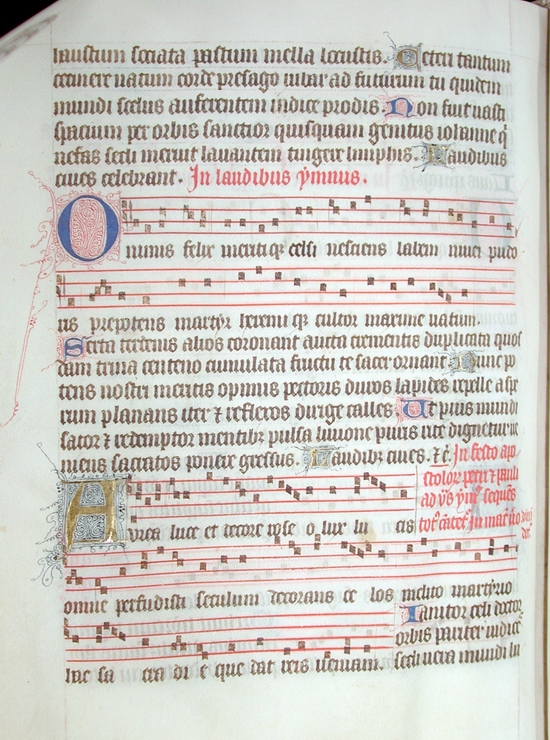 haustum sociata pastum mella locustis. Ceteri tantum
cecinere vatum corde presago iubar ad futurum tu quidem
mundi scelus auferentem indice prodis. Non fuit vasti
spacium per orbis sanctior quisquam genitus iohanne q̄
nefas secli meruit lavantem tingere limphis. Laudibus
cives celebrant. In laudibus ymnus.
O nimis felix meritiq; celsi nesciens labem nivei pudo
ris prepotens martyr heremi q; cultor maxime vatum.
Serta terdenis alios coronant aucta crementis duplicata quos
dam trina centeno cumulata fructu te sacer ornant. Nunc po
tens nostri meritis opimis pectoris duros lapides repelle aspe
rum planans iter ⁊ reflexos dirige calles. Ut pius mundi
sator ⁊ redemptor mentibꝫ pulsa livione puris rite dignetur ve
niens sacratos ponere gressus. Laudibꝫ cives. ⁊c̄. In festo apo
stolorꝫ petri ⁊ pauli
ad
Aurea luce et decore rose o lux lu cis
omne perfudisti seculum decorans ce los inclito martyrio
Ianitor celi doctor
orbis pariter iudices
hac sa cra di e que dat reis veniam. secli vera mundi lu